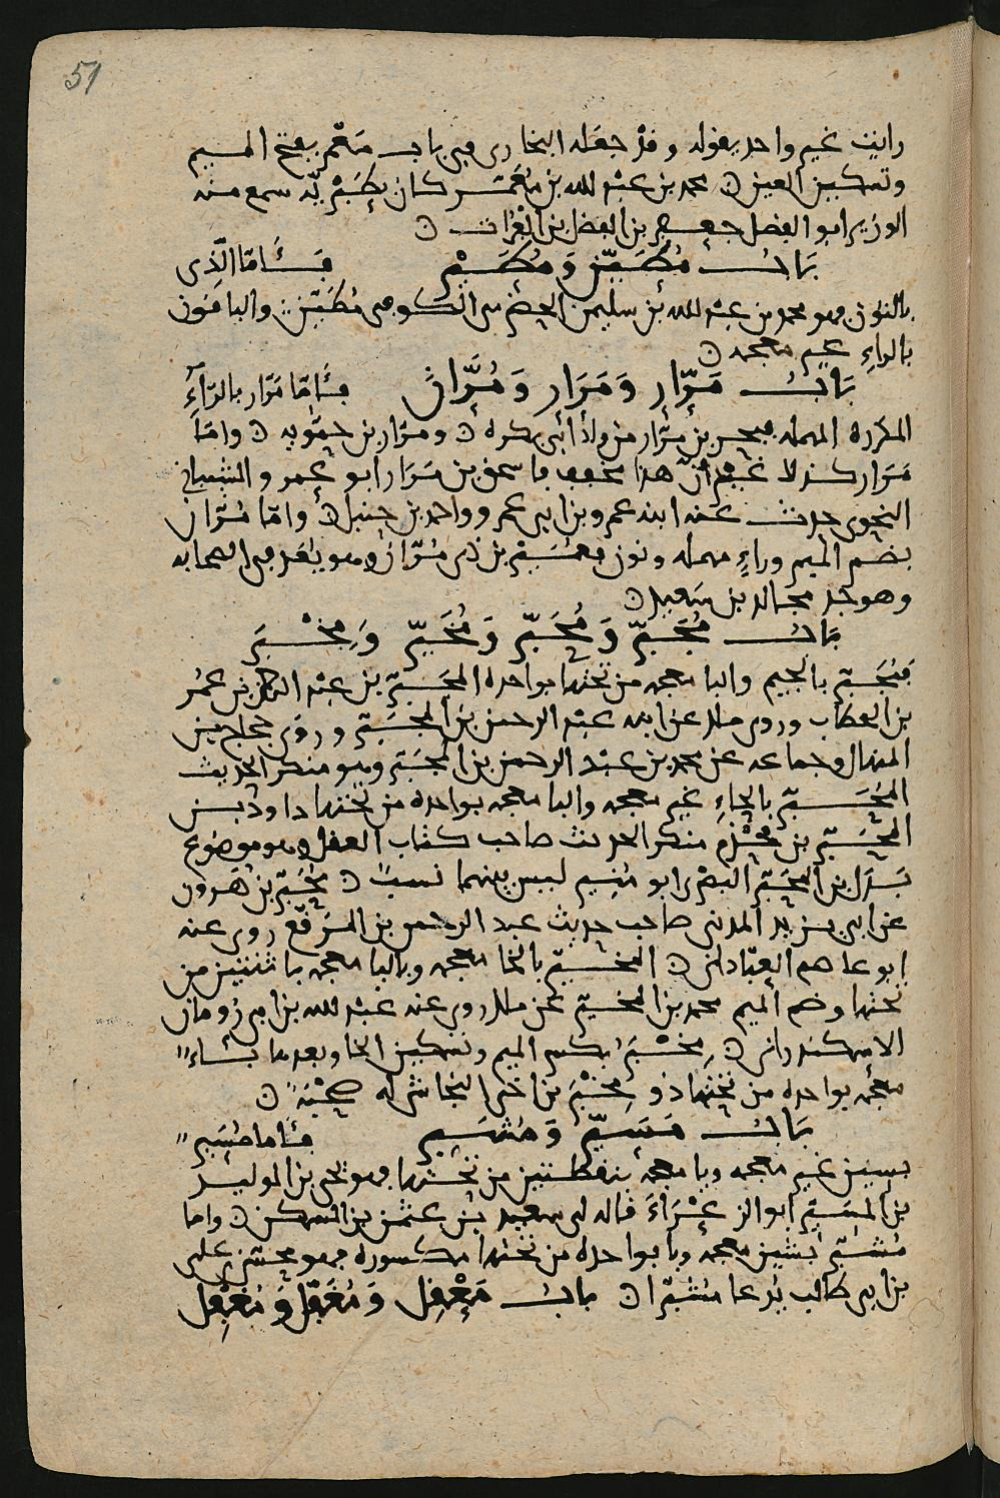 51
رايت غير واحد يقوله وقد جعله البخارى فى باب مَعْمر بفتح الميم
وتسكين العين ه محمد بن عبد الله بن مُعَمَّر كان بطَبَرِيّه سمع منه
الوزير ابو الفضل جعفر بن الفضل بن الفُرات ه
بَابُ مُطَيَّن وَمُطَيْر فَأمّا الَّذِى
بالنون فهو محمد بن عبد الله بن سليمن الحضرمى الكوفى مُطَيَّن والباقون
بالراءِ غير معجمه ه
بَابُ مَرَّار وَمَرَار وَمُرَّان فَأمّا مَرّار بالرّآءِ
المكرره المهمله فبحر بن مَرَّار من ولد أبى بكره ه ومَرّار بن حمّويه ه وامّا
مَرَار كذلك غير أنّ هذا مخفف فاسحق بن مَرَار ابو عمرو الشيبانى
النحوى حدث عنه ابنه عمرو بن ابى عمرو واحمد بن حنبل ه وامّا مُرّان
بضم الميم وراءٍ مهمله ونون فعُمَيْر بن ذى مُرّان وهو يُعَد فى الصحابه
وهو جد مجالد بن سَعيد ه
بَابُ مُجَبّر وَمُحَبّر وَمُخَيّر وَمِخْبَر
فمُجَبّر بالجيم والبا معجمه من تحتها بواحده المُجَبّر بن عبد الرحمن بن عُمَر
بن الخطاب وروى ملك عن ابنه عبد الرحمن بن المُجَبّر وروى حجاج بن
المنهال وجماعه عن محمد بن عبد الرحمن بن المُجَبّر وهو منكر الحديث
المُحَبَّر بالحاءِ غير معجمه والبا معجمه بواحده من تحتها داود بن
المُحَبّر بن قَحْذَم منكر الحديث صاحب كتاب العقل وهو موضوع
بَدَل بن المُحَبَّر البصرى ابو مُنِير ليس بينهما نسبٌ ه مُحَبَّر بن هَرون
عن ابى يزيد المدنى صاحب حديث عبد الرحمن بن المرقّع روى عنه
ابو عاصم العبّادانى ه المُخَيّر بالخا معجمه وباليا معجمه باثنتين من
تحتها وضم الميم محمد بن المُخَيّر عن ملك روى عنه عبد الله بن ابى رومان
الاسكندرانى ه مِخْبَر بكسر الميم وتسكين الخا وبعدها باء
معجمه بواحده من تحتها ذو مِخْبَر بن اخى النجاشى له صُحْبَةٌ ه
بَابُ مُسَيَّر وَمُشَبِّر فَأما مُسَيّر
بسين غير معجمه ويا معجمه بنقطتين من تحتها فهو يحيى بن الوليد
بن المُسَيّر ابو الزَعْرَاءَ قاله لى سعيد بن عثمن بن السكن ه واما
مُشَبِّر بشين معجمه وبا بواحده من تحتها مكسوره فهو محسّن بن على
بن ابى طالب يُدعا مُشَبِّرًا ه بابُ مَعْقِل وَمُغَفَّل وَمُغْفِل